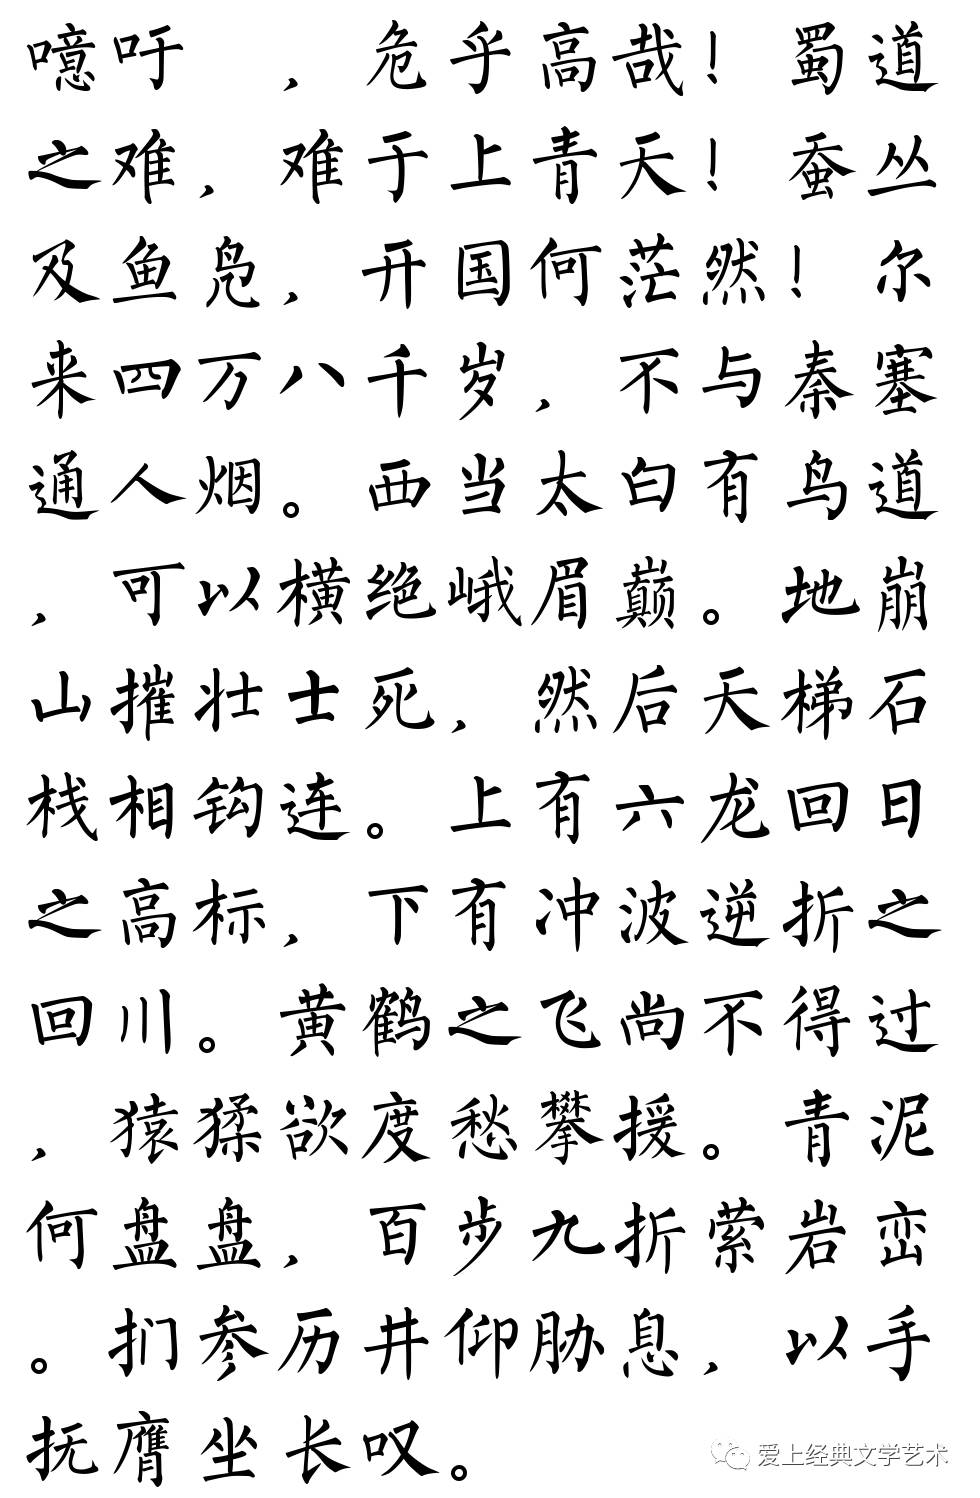 噫吁　，危乎高哉！蜀道
之难，难于上青天！蚕丛
及鱼凫，开国何茫然！尔
来四万八千岁，不与秦塞
通人烟。西当太白有鸟道
，可以横绝峨眉巅。地崩
山摧壮士死，然后天梯石
栈相钩连。上有六龙回日
之高标，下有冲波逆折之
回川。黄鹤之飞尚不得过
，猿猱欲度愁攀援。青泥
何盘盘，百步九折萦岩峦
。扪参历井仰胁息，以手
抚膺坐长叹。
爱上经典文学艺术